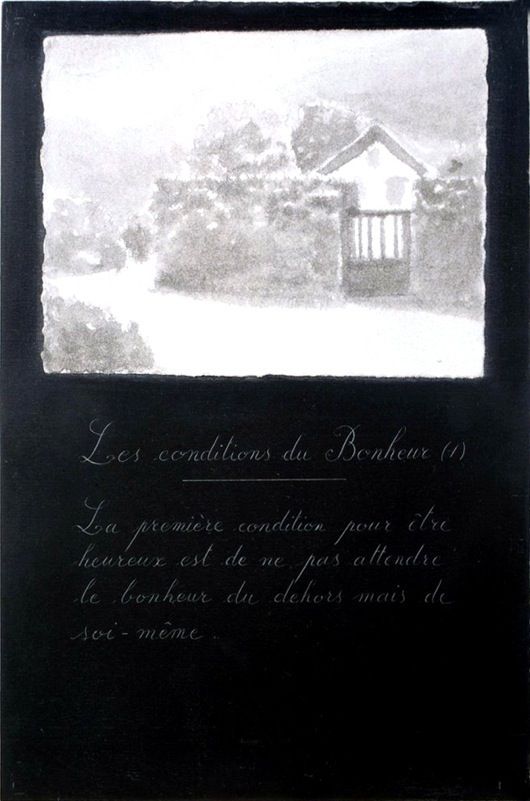 Les conditions du Bonheur (1)
La première condition pour être
heureux est de ne pas attendre
le bonheur du dehors mais de
soi-même.